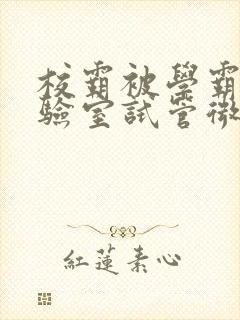 校霸被學霸
驗室試管微
紅蓮素心